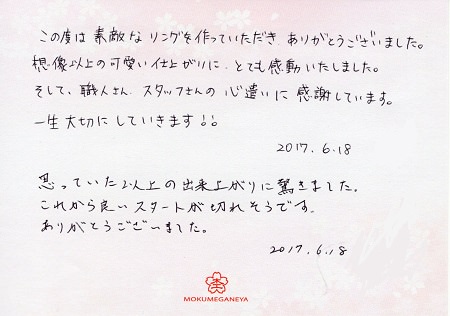 この度は素敵なリングを作っていただき ありがとうございました。
想像以上の可愛い仕上がりに、とても感動いたしました。
そして、職人さん、スタッフさんの心遣いに感謝しています。
一生大切にしていきます!!
2017.6.18
思っていた以上の出来上がりに驚きました。
これから良いスタートが切れそうです。
ありがとうございました。
2017.6.18
MOKUMEGANEYA